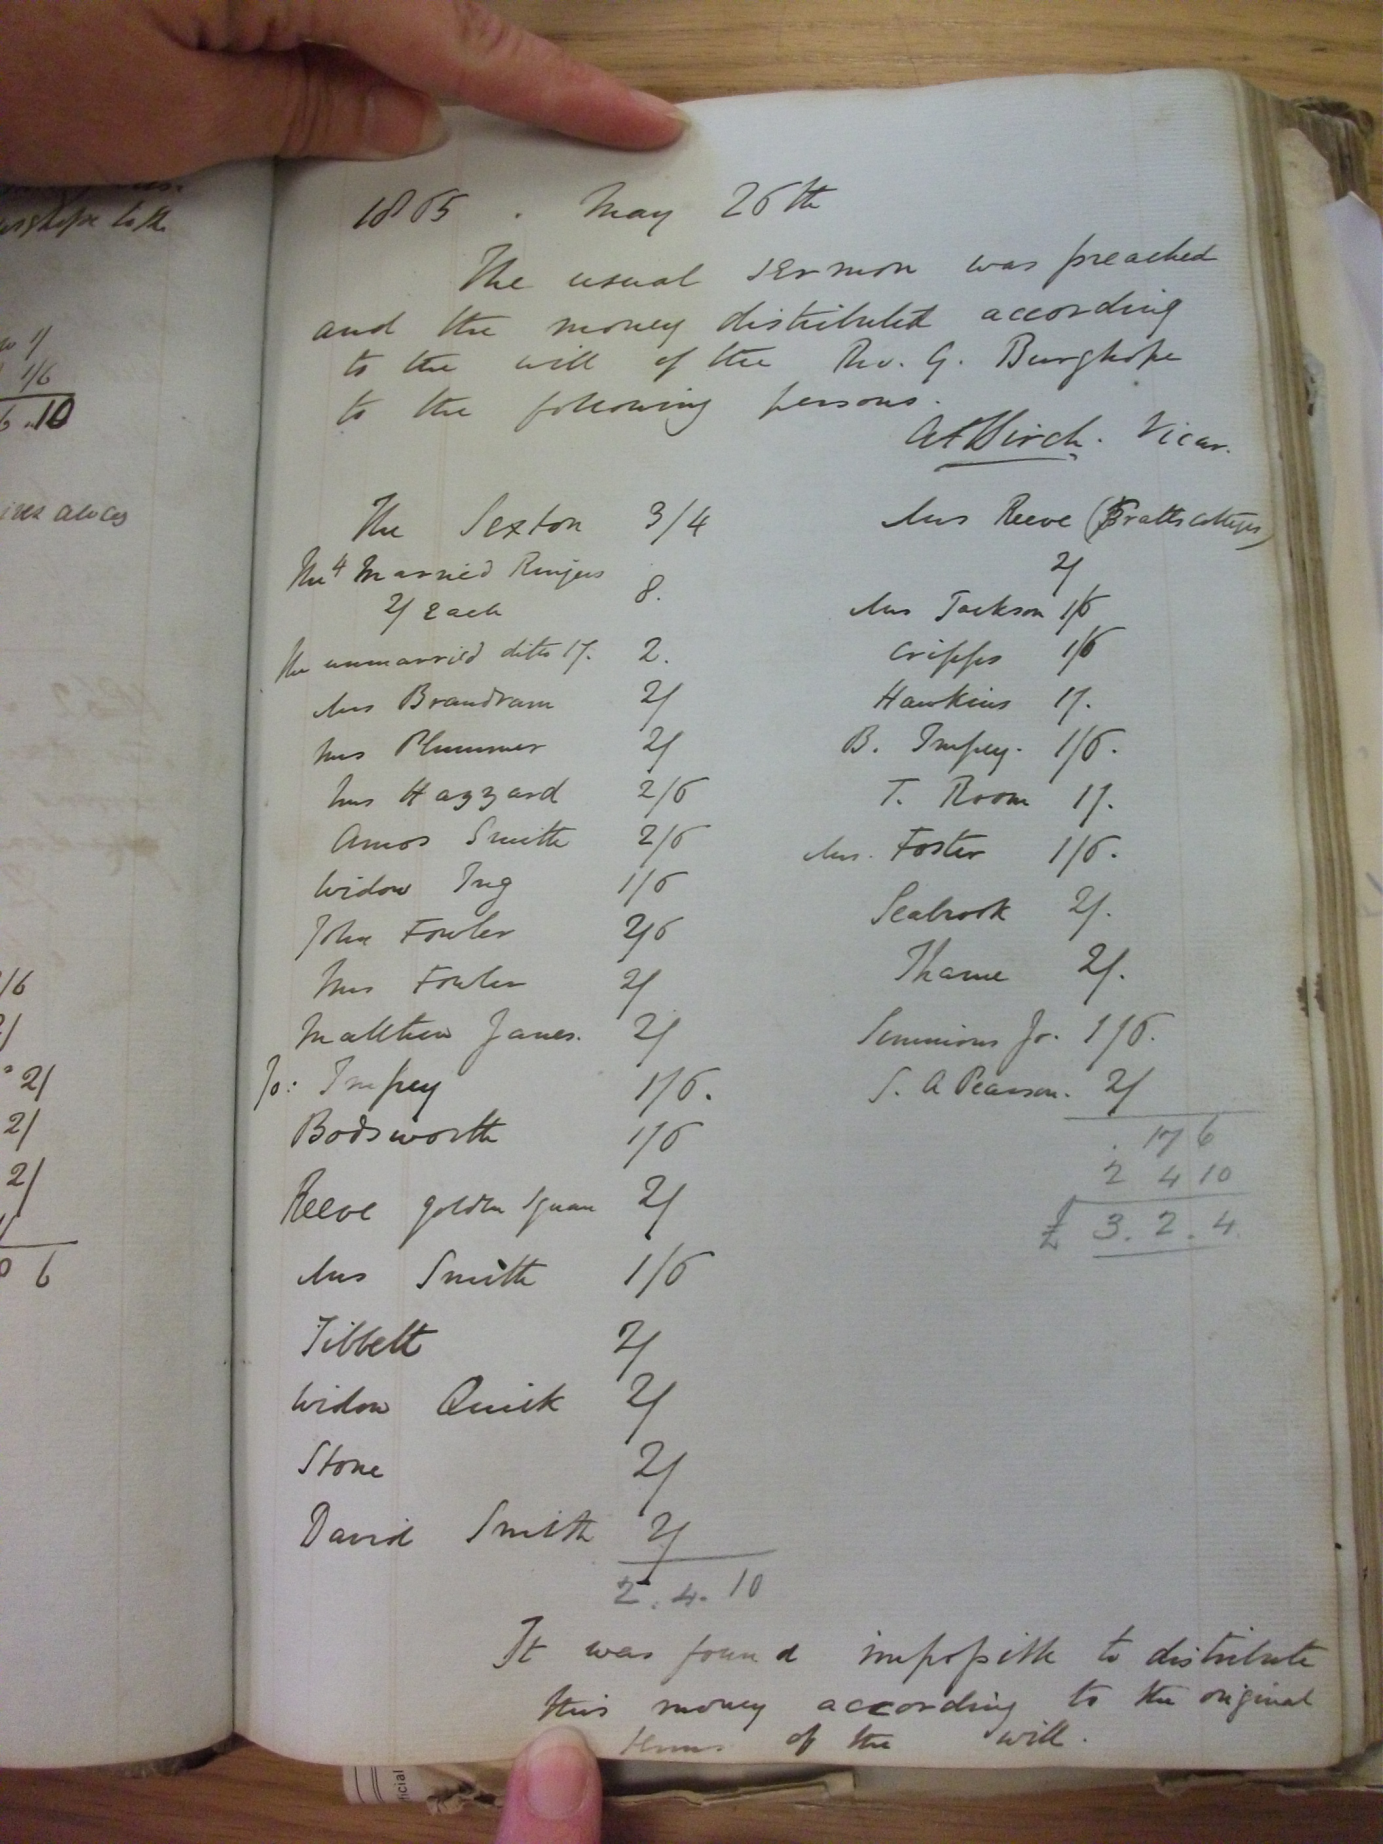 1865 . May 26th
The usual sermon was preached
and the money distributed according
to the will of the Rev. G. Burghope
to the following persons.
Birch. Vicar.
The Sexton 3/4
The 4 Married Ringers
2/ Each 8.
The unmarried ditto 1/. 2.
Mrs Brandram 2/
Mrs Plummer 2/
Mrs Hazzard 2/6
Amos Smith 2/6
Widow Ing 1/6
John Fowler 2/6
Mrs Fowler 2/
Matthew Janes. 2/
Jo: Impey 1/6.
Bodsworth 1/6
Reeve golden Square 2/
Mrs Smith 1/6
Tibbett 2/
Widow Quick 2/
Stone 2/
David Smith 2/
2. 4. 10
Mrs Reeve (Pratts cottages)
2/
Mrs Jackson 1/6
Cripps 1/6
Hawkins 1/.
B. Impey. 1/6.
T. Room 1/.
Mrs. Foster 1/6.
Seabrook 2/.
Thame 2/.
Simmions Jr. 1/6.
S. A Pearson. 2/
. 17 6
2 4 10
£ 3. 2. 4
It was found impossible to distribute
this money according to the original
terms of the will.
burghope to the
1/
1/6
6 .. 10
/6
2/
2/
2/
2/
0 6
icial